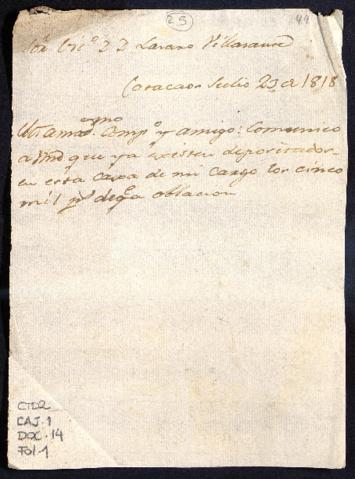 25
44
Lazaro Villasante
Caracas Julio 23 de 1818
Mi amado. Comp.o y amigo: Comunico
a Vmd que ya existen depositados
en esta Caxa de mi cargo los cinco
mil p.s de oblacion
CTD2
CAJ.1
DOC.14
FOL.1